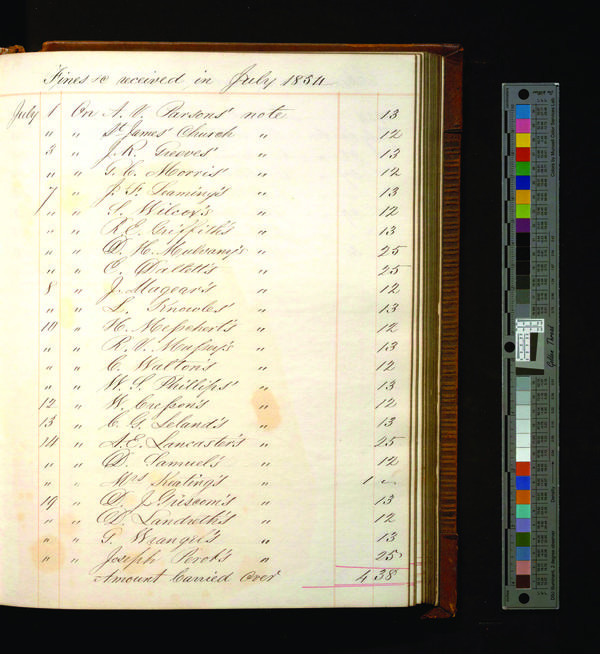 Fines &c received in July 1854
July 1 On A. V. Parsons' note 13
" " St James' Church " 12
3 " J. R. Greeves' " 13
" " G. C. Morris' " 12
7 " J. F. Leaming's " 13
" " S. Wilcox's " 12
" " R. E. Griffith's " 13
" " D. H. Mulvany's " 25
" " C. Dallett's " 25
8 " J. Magear's " 12
" " L. Knowles' " 13
10 " H. " 12
" " R. V. Massey's " 13
" " C. Walton's " 12
" " W. S. Phillips' " 13
12 " W. Cresson's " 12
13 " C. G. Leland's " 13
14 " A. E. Lancaster's " 25
" " D. Samuel's " 12
" " Mrs Keating's " 1 "
19 " D. J. Griscom's " 13
" " D. Landreth's " 12
" " G. " 13
" " Joseph Perot's " 25
Amount Carried Over 4 38